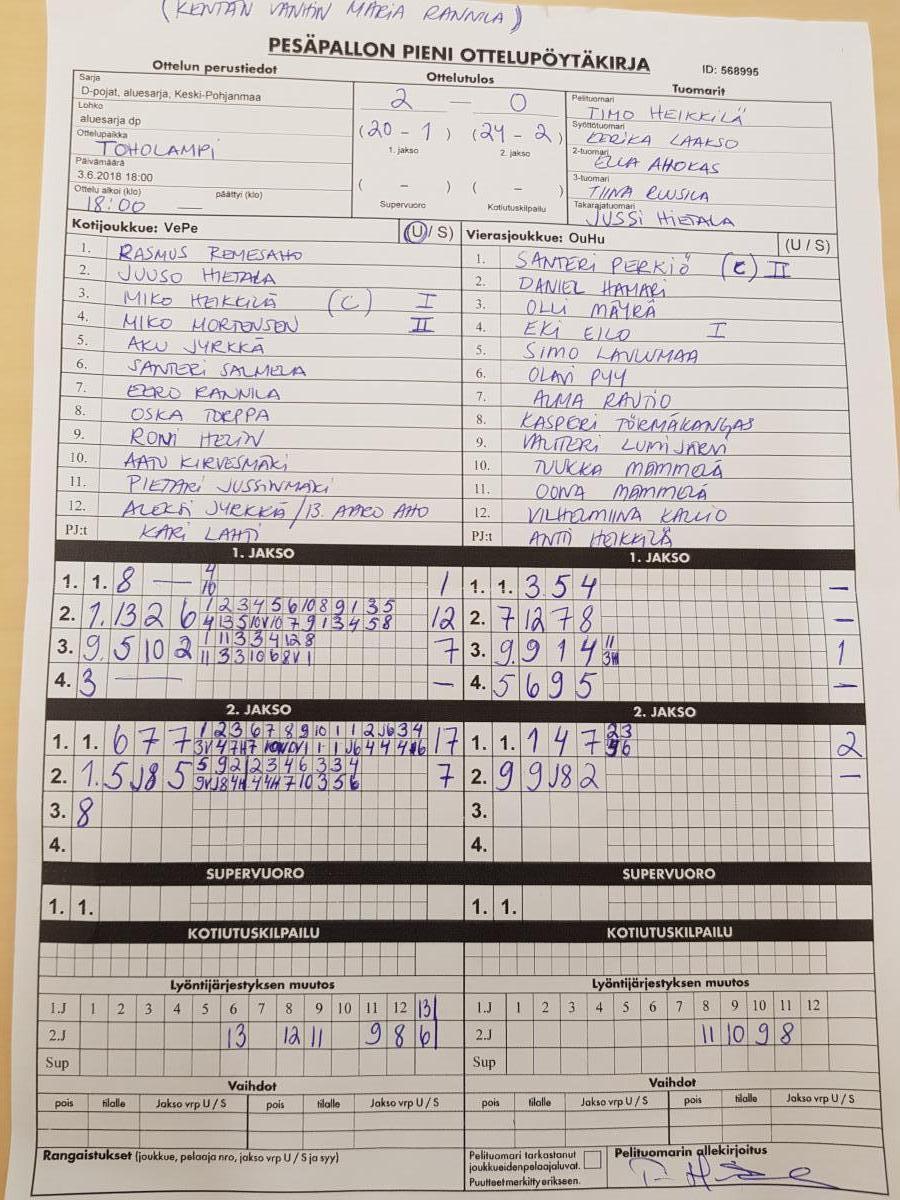 (KENTÄN VANHIN MARIA RANNILA)
PESÄPALLON PIENI OTTELUPÖYTÄKIRJA
ID: 568995
Ottelun perustiedot
Sarja
D-pojat, aluesarja, Keski-Pohjanmaa
Lohko
aluesarja dp
Ottelupaikka
TOHOLAMPI
Päivämäärä
3.6.2018 18:00
Ottelu alkoi (klo) päättyi (klo)
18:00 —
Ottelutulos
2 — 0
(20 - 1) (24 - 2)
1. jakso 2. jakso
( - ) ( - )
Supervuoro Kotiutuskilpailu
Tuomarit
Pelituomari
TIMO HEIKKILÄ
Syöttötuomari
EERIKA LAAKSO
2-tuomari
ELLA AHOKAS
3-tuomari
TIINA RUUSILA
Takarajatuomari
JUSSI HIETALA
Kotijoukkue: VePe (U / S)
1. RASMUS REMESAHO
2. JUUSO HIETALA
3. MIKO HEIKKILÄ (C) I
4. MIKO MORTENSEN II
5. AKU JYRKKÄ
6. SANTERI SALMELA
7. EERO RANNILA
8. OSKA TORPPA
9. RONI HELIN
10. AATU KIRVESMÄKI
11. PIETARI JUSSINMÄKI
12. ALEKSI JYRKKÄ / 13. AARO AHO
PJ:t KARI LAHTI
Vierasjoukkue: OuHu (U / S)
1. SANTERI PERKIÖ (C) II
2. DANIEL HAMARI
3. OLLI MÄYRÄ
4. EKI EILO I
5. SIMO LAVUMAA
6. OLAVI PYY
7. ALMA RAUTIO
8. KASPERI TÖRMÄKANGAS
9. VALTTERI LUMIJÄRVI
10. TUUKKA MÄMMELÄ
11. OONA MÄMMELÄ
12. VILHELMIINA KALLIO
PJ:t ANTTI HEIKKILÄ
1. JAKSO
1. 1. 8 — 4 1
10
2. 1. 13 2 6 1 2 3 4 5 6 10 8 9 1 3 5 12
3. 9. 5 10 2 1 11 3 3 4 12 8 7
4. 3 — —
1. JAKSO
1. 1. 3 5 4 —
2. 7 12 7 8 —
3. 9. 9 1 4 11 1
4. 5 6 9 5 —
2. JAKSO
1. 1. 6 7 7 17
2. 1. 5 J8 5 5 9 2 1 2 3 4 6 3 3 4 7
3. 8
4.
2. JAKSO
1. 1. 1 4 7 23 2
2. 9 9 J8 2 —
3.
4.
SUPERVUORO
1. 1.
SUPERVUORO
1. 1.
KOTIUTUSKILPAILU
KOTIUTUSKILPAILU
Lyöntijärjestyksen muutos
1.J 1 2 3 4 5 6 7 8 9 10 11 12 13
2.J 13 12 11 9 8 6
Sup
Lyöntijärjestyksen muutos
1.J 1 2 3 4 5 6 7 8 9 10 11 12
2.J 11 10 9 8
Sup
Vaihdot
pois tilalle Jakso vrp U / S pois tilalle Jakso vrp U / S
Vaihdot
pois tilalle Jakso vrp U / S pois tilalle Jakso vrp U / S
Rangaistukset (joukkue, pelaaja nro, jakso vrp U / S ja syy)
Pelituomari tarkastanut
joukkueiden pelaajaluvat.
Puutteet merkitty erikseen.
Pelituomarin allekirjoitus